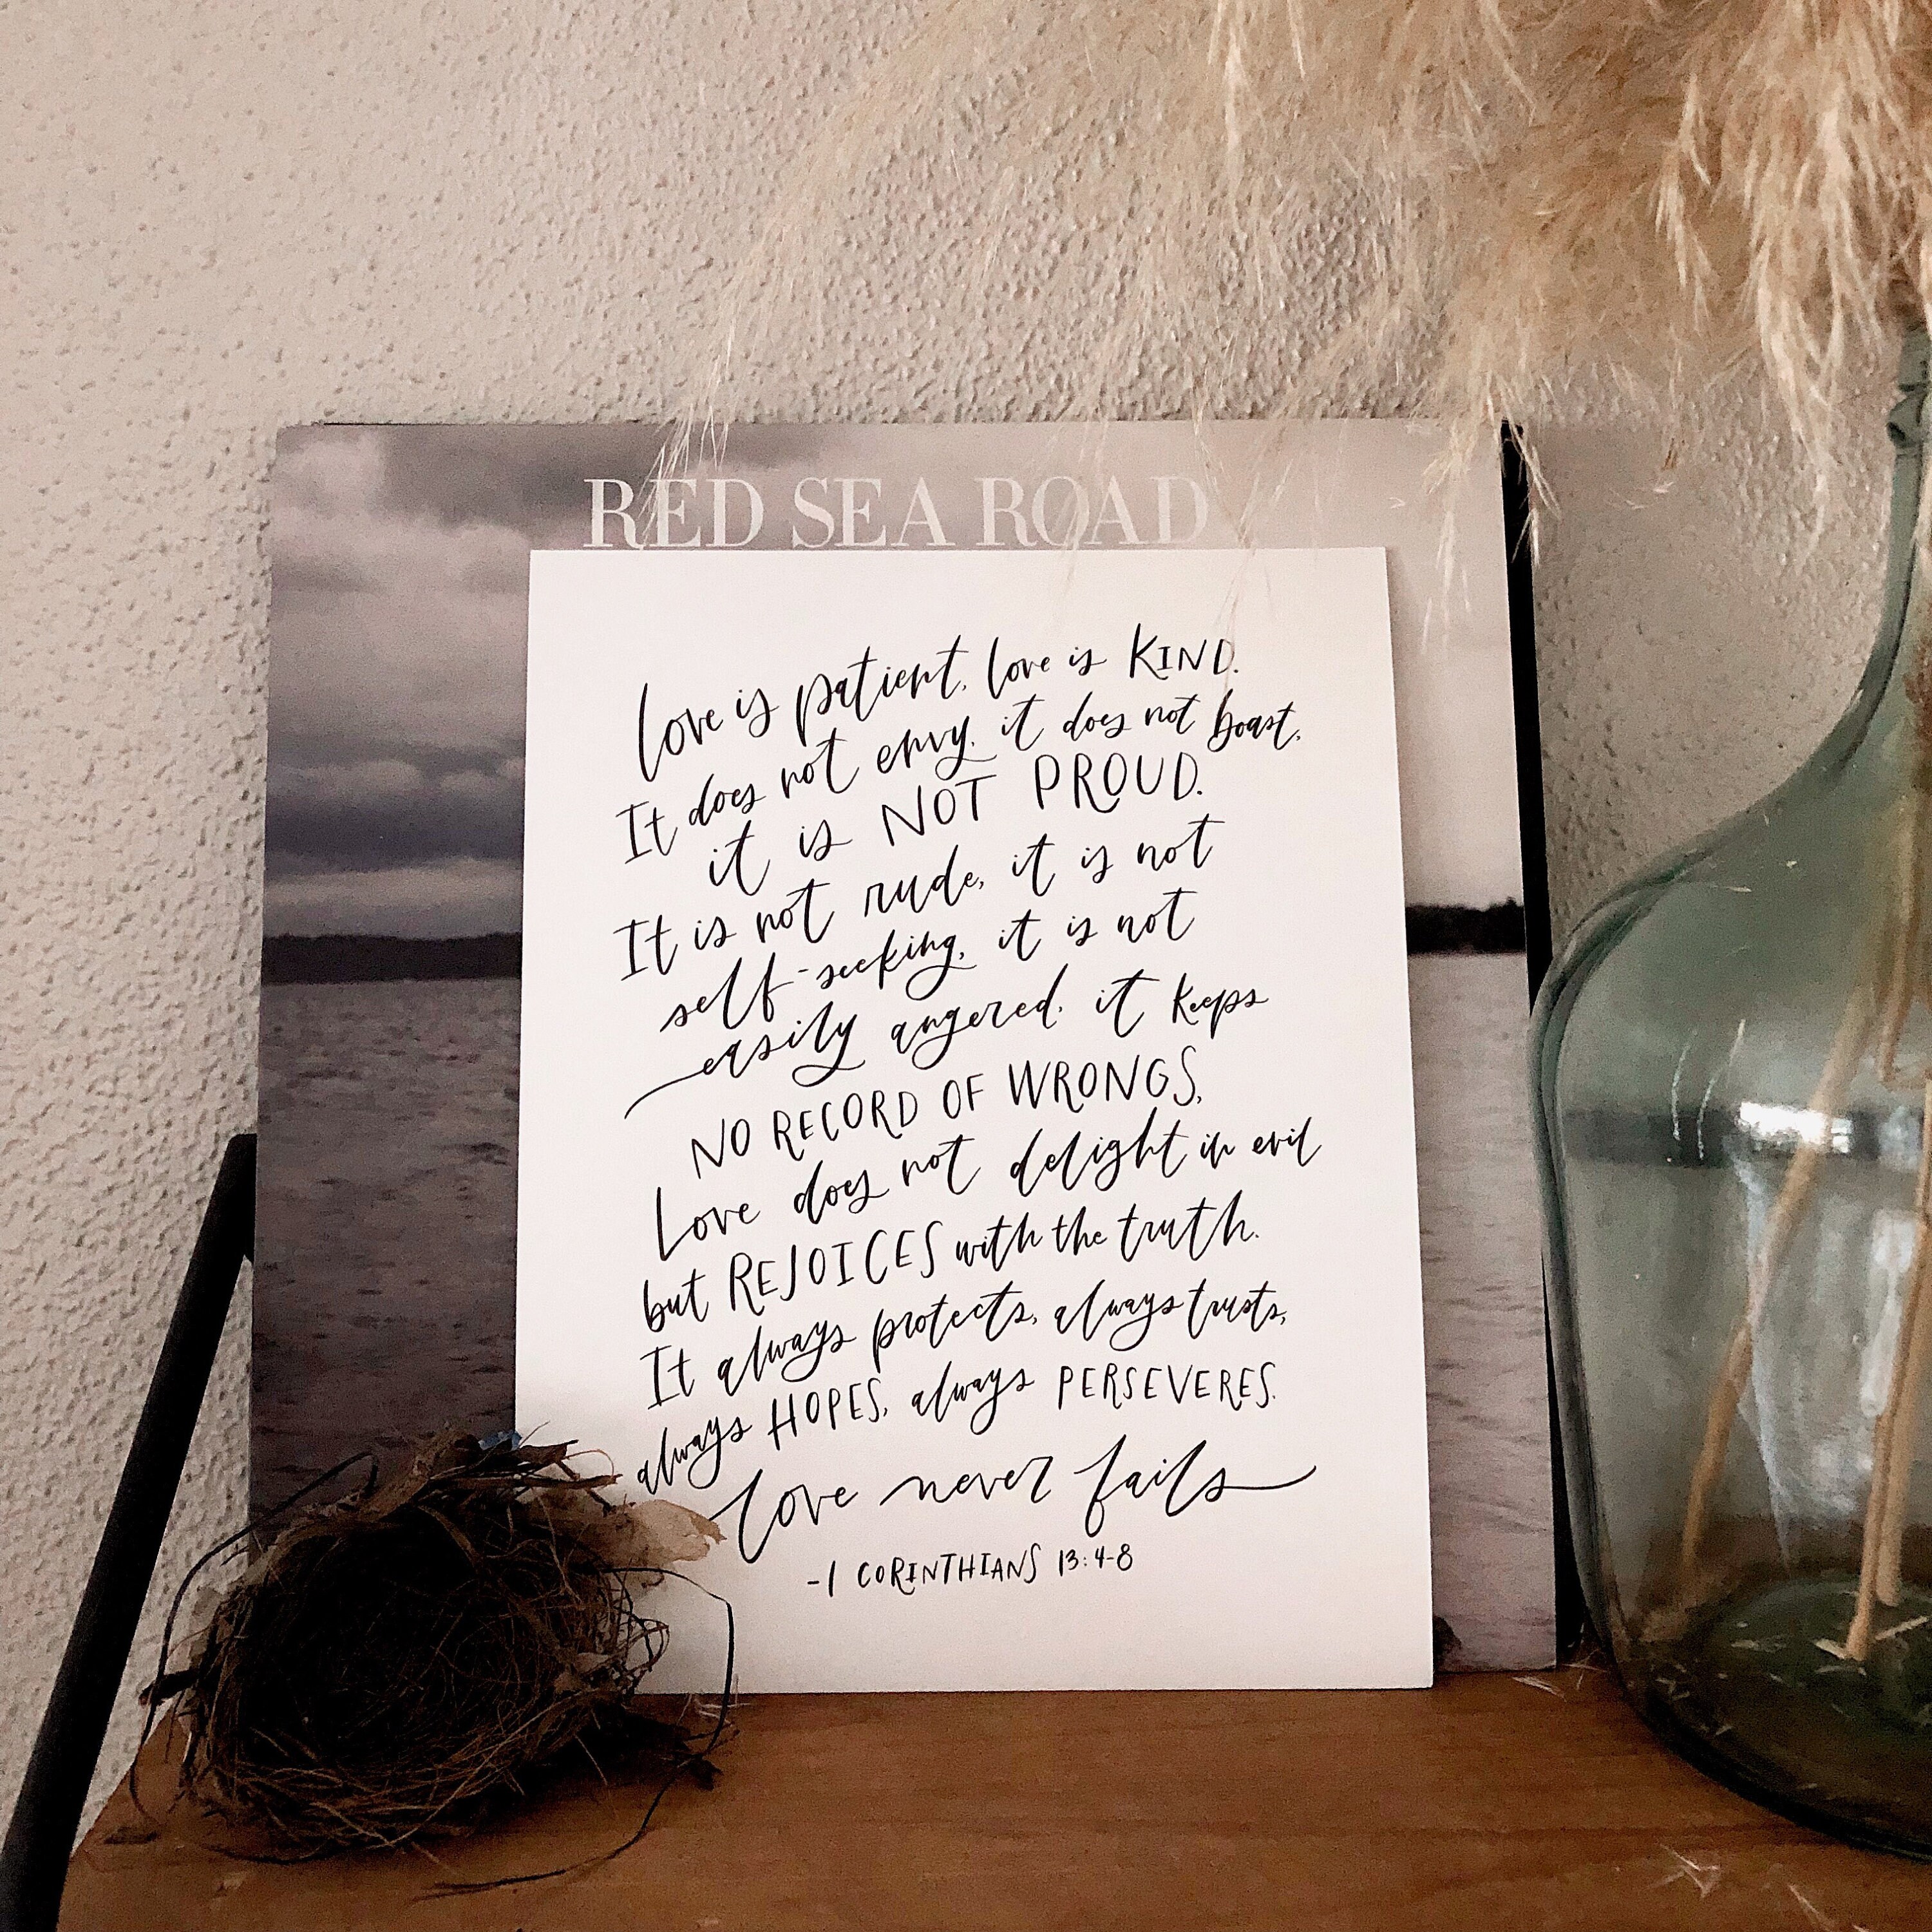 RED SEA ROAD
Love is patient, love is KIND.
It does not envy, it does not boast,
it is NOT PROUD.
It is not rude, it is not
self-seeking, it is not
easily angered, it keeps
NO RECORD OF WRONGS,
Love does not delight in evil
but REJOICES with the truth.
It always protects, always trusts,
always HOPES, always PERSEVERES.
Love never fails
-1 CORINTHIANS 13:4-8